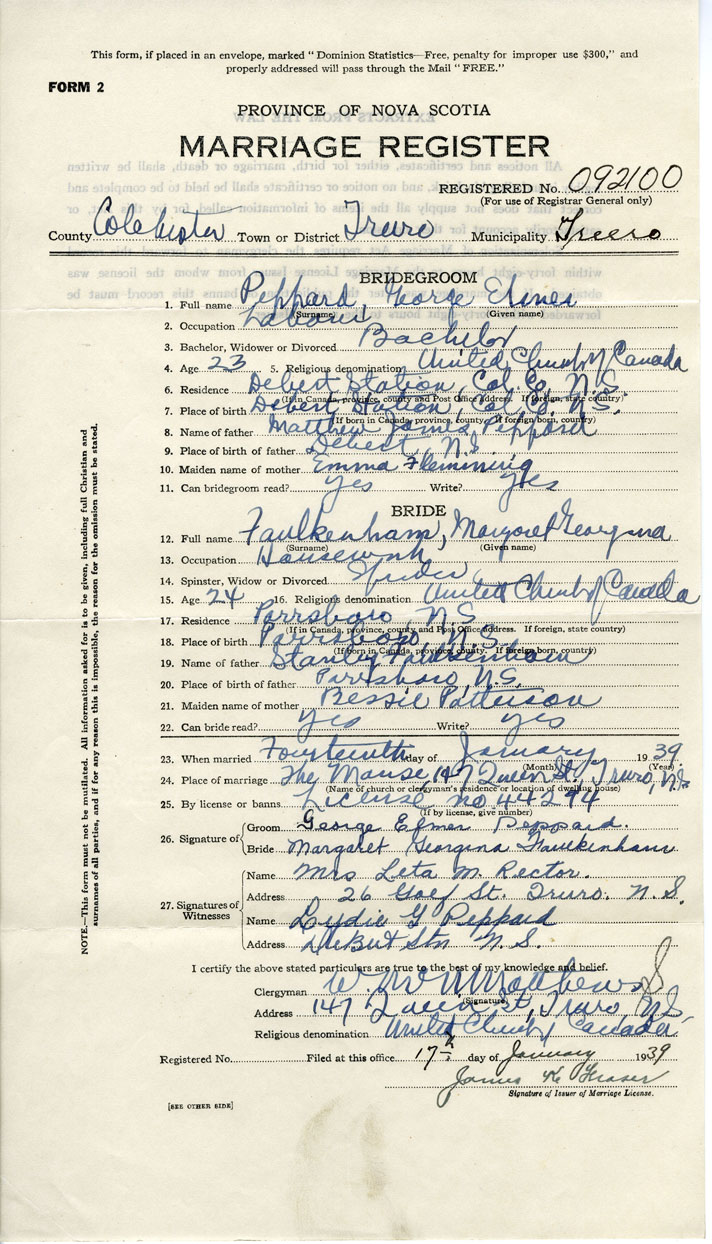 This form, if placed in an envelope, marked "Dominion Statistics—Free, penalty for improper use $300," and
properly addressed will pass through the Mail "FREE."
FORM 2
PROVINCE OF NOVA SCOTIA
MARRIAGE REGISTER
REGISTERED No. 092100
(For use of Registrar General only)
County Colchester Town or District Truro Municipality Truro
BRIDEGROOM
1. Full name Peppard, George Elmer
(Surname) (Given name)
2. Occupation Labour
3. Bachelor, Widower or Divorced Bachelor
4. Age 23 5. Religious denomination United Church of Canada
6. Residence Debert Station, Col. Co. N.S.
(If in Canada, province, county and Post Office address. If foreign, state country)
7. Place of birth Debert Station, Col. Co. N.S.
(If born in Canada, province, county. If foreign born, country)
8. Name of father Matthew James Peppard
9. Place of birth of father Debert, N.S
10. Maiden name of mother Emma Flemming
11. Can bridegroom read? yes Write? yes
BRIDE
12. Full name Faulkenham, Margaret Georgina
(Surname) (Given name)
13. Occupation Housework
14. Spinster, Widow or Divorced
15. Age 24 16. Religious denomination United Church of Canada
17. Residence Parrsboro, N.S
(If in Canada, province, county and Post Office address. If foreign, state country)
18. Place of birth Parrsboro, N.S.
(If born in Canada, province, county. If foreign born, country)
19. Name of father Stanley Faulkenham
20. Place of birth of father Parrsboro, N.S.
21. Maiden name of mother Bessie Patterson
22. Can bride read? yes Write? yes
23. When married Fourteenth day of January 1939.
(Month) (Year)
24. Place of marriage The Manse 147 Queen St., Truro, N.S
(Name of church or clergyman's residence or location of dwelling house)
25. By license or banns License no 44294
(If by license, give number)
26. Signature of
Groom George Elmer Peppard.
Bride Margaret Georgina Faulkenham
27. Signatures of Witnesses
Name Mrs Leta M. Rector.
Address 26 Golf St. Truro. N.S.
Name Lydie G Peppard
Address DeBert Stn N.S.
I certify the above stated particulars are true to the best of my knowledge and belief.
Clergyman W. Matthews
(Signature)
Address 147 Queen St, Truro, N.S.
Religious denomination United Church of Canada
Registered No. Filed at this office 17th day of January 1939
James Fraser
Signature of Issuer of Marriage License.
[SEE OTHER SIDE]
NOTE.—This form must not be mutilated. All information asked for is to be given, including full Christian and
surnames of all parties, and if for any reason this is impossible, the reason for the omission must be stated.